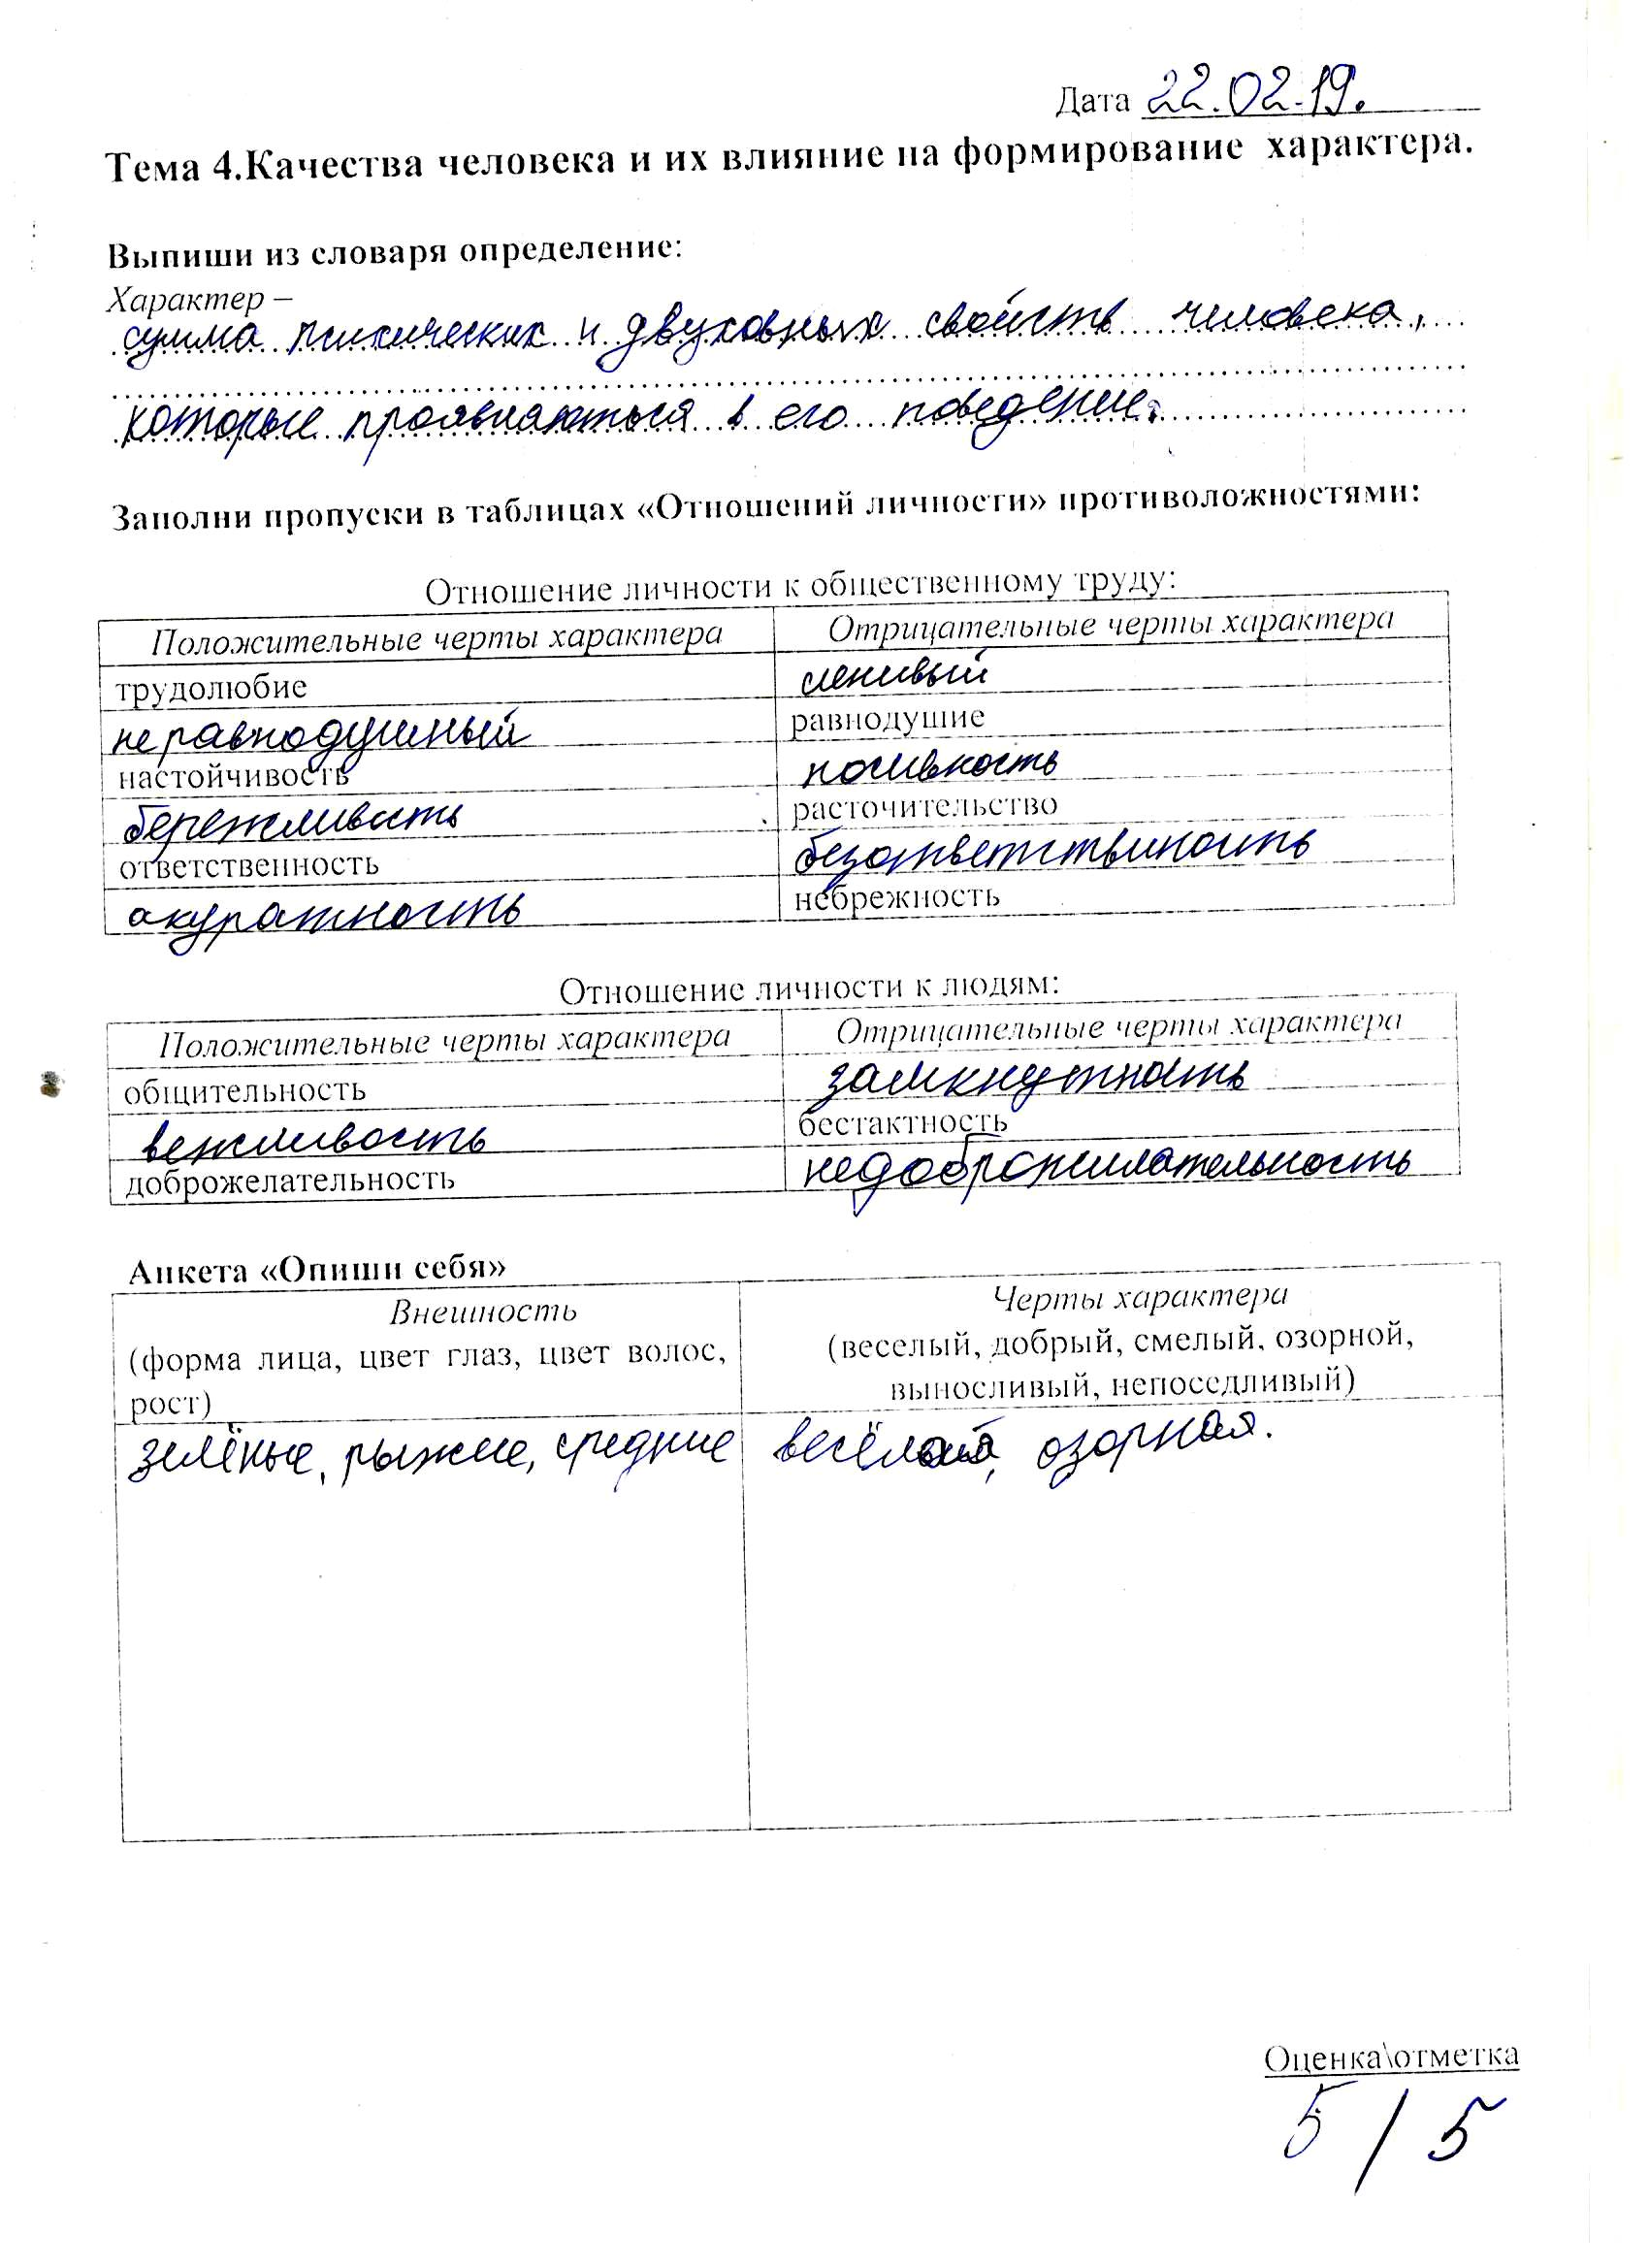 Дата 22.02.19.
Тема 4.Качества человека и их влияние на формирование характера.
Выпиши из словаря определение:
Характер –
сумма психических и двуховных свойств человека,
которые проявляються в его поведение.
Заполни пропуски в таблицах «Отношений личности» противоложностями:
Отношение личности к общественному труду:
Положительные черты характера Отрицательные черты характера
трудолюбие ленивый
неравнодушный равнодушие
настойчивость
бережливость расточительство
ответственность безответствиность
акуратность небрежность
Отношение личности к людям:
Положительные черты характера Отрицательные черты характера
общительность замкнутность
вежливость бестактность
доброжелательность недоброжилательность
Анкета «Опиши себя»
Внешность Черты характера
(форма лица, цвет глаз, цвет волос, (веселый, добрый, смелый, озорной,
рост) выносливый, непоседливый)
зелёные, рыжие, средние весёлая, озорная.
Оценка\отметка
5 / 5